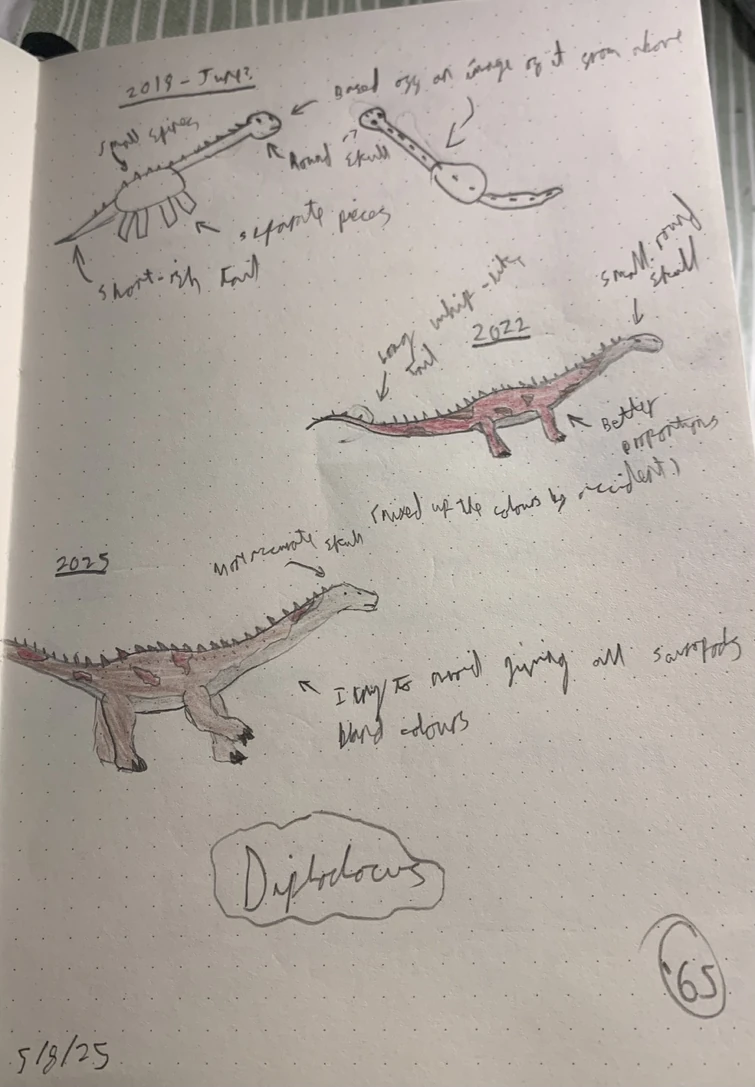 2018 - June?
Based off an image of it from above
Small spines
Round skull
separate pieces
short-ish tail
small round
skull
long whip-like
tail
2022
Better
proportions
(mixed up the colours by accident)
2025
More accurate skull
I try to avoid giving all sauropods
bland colours
Diplodocus
'65
5/8/25